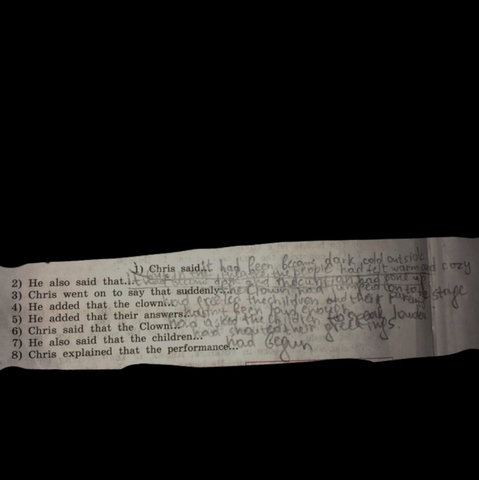 1) Chris said... it had been became dark cold outside
2) He also said that... the people had felt warm and cozy
3) Chris went on to say that suddenly... Clown had jumped on to stage
4) He added that the clown... had greeted the children and their parents
5) He added that their answers... hadn't been loud enough
6) Chris said that the Clown... had asked the children to speak louder
7) He also said that the children... had shouted their greetings
8) Chris explained that the performance... had begun